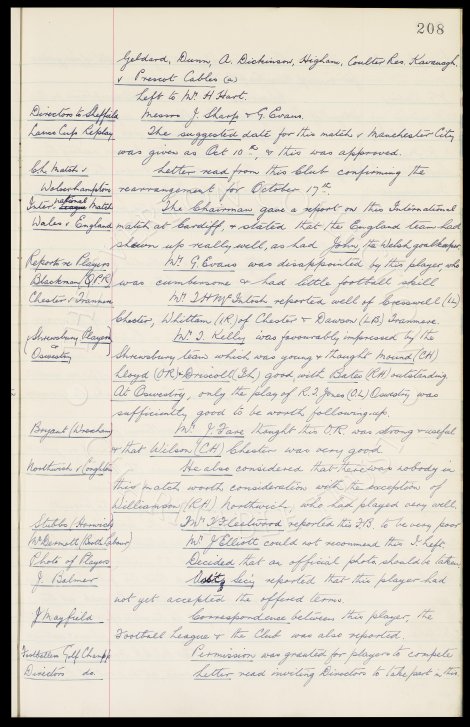 208
Geldard, Dunn, A. Dickinson, Higham, Coulter Res. Kavanagh.
v Prescot Cables (a)
Left to Mr H Hart.
Directors to Sheffield Messrs J. Sharp & G. Evans.
Lancs Cup Replay The suggested date for this match v Manchester City
was given as Oct 10th, & this was approved.
Ch. Match v Letter read from this Club confirming the
Wolverhampton rearrangement for October 17th.
Inter. national Match The Chairman gave a report on this International
Wales v England match at Cardiff, & stated that the England team had
shown up really well, as had John, the Welsh goalkeeper.
Report re Players Mr G. Evans was disappointed by this player, who
Blackman (QPR) was cumbersome & had little football skill
Chester v Tranmere Mr T.H. McIntosh reported well of Cresswell (IL)
Chester, Whittam (IR) of Chester & Dawson (LB) Tranmere.
Shrewsbury Players Mr T. Kelly was favourably impressed by the
Oswestry Shrewsbury team which was young & thought Mound (CH)
Lloyd (OR) & Driscoll (IL) good with Bates (RH) outstanding
At Oswestry, only the play of R.T. Jones (OL) Oswestry was
sufficiently good to be worth following up.
Bryant (Wrexham) Mr J. Fare thought this O.R. was strong & useful
& that Wilson (CH) Chester was very good.
Northwich v Congleton He also considered that there was nobody in
this match worth consideration with the exception of
Williamson (RH) Northwich, who had played very well.
Stubbs (Horwich) Mr F. Fleetwood reported this F.B. to be very poor
McDermott (Booth Labour) Mr J Elliott could not recommend this I. left.
Photo of Players Decided that an official photo should be taken
J. Balmer Secy reported that this player had
not yet accepted the offered terms.
J Mayfield Correspondence between this player, the
Football League & the Club was also reported.
Footballers Golf Champp. Permission was granted for players to compete
Directors do. Letter read inviting Directors to take part in this